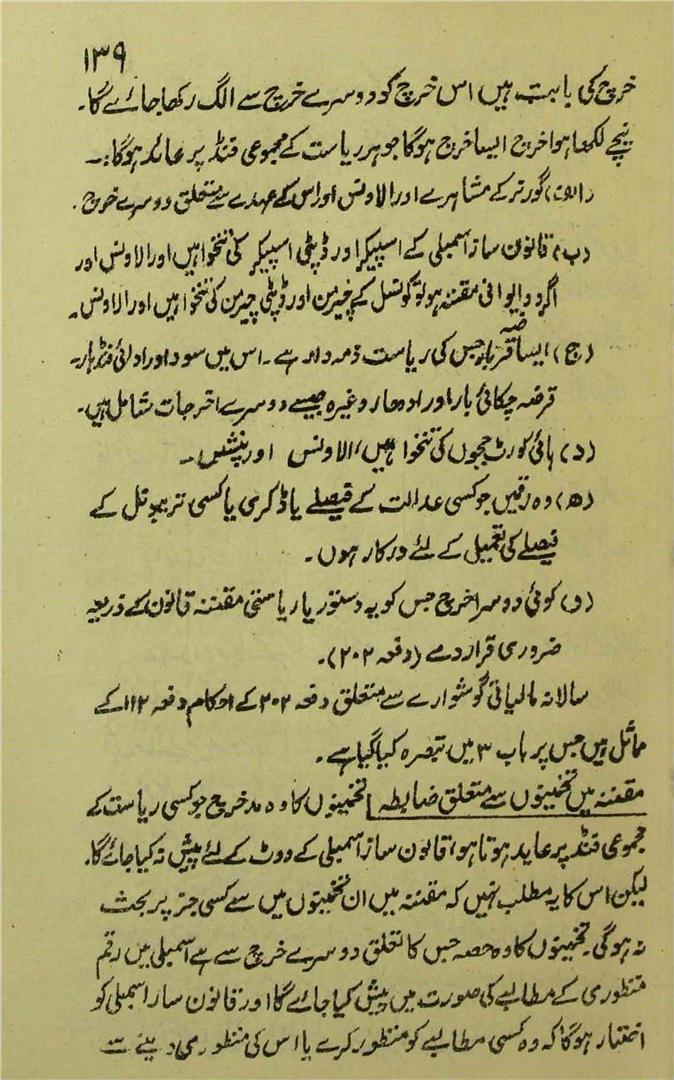 ۱۳۹
خرچ کی بابت ہیں اس خرچ کو دوسرے خرچ سے الگ رکھا جائے گا۔
نیچے لکھا ہوا خرچ ایسا خرچ ہوگا جو ہر ریاست کے مجموعی فنڈ پر عائد ہوگا:۔
(الف) گورنر کے مشاہرے اور الاونس اور اس کے عہدے سے متعلق دوسرے خرچ۔
(ب) قانون ساز اسمبلی کے اسپیکر اور ڈپٹی اسپیکر کی تنخواہیں اور الاونس اور
اگر دو ایوانی مقننہ ہو تو کونسل کے چیرمن اور ڈپٹی چیرمن کی تنخواہیں اور الاونس۔
(ج) ایسا قرضہ بار جس کی ریاست ذمہ دار ہے۔ اس میں سود اور ادائی فنڈ بار۔
قرضہ چکائی بار اور ادھار وغیرہ جیسے دوسرے اخرجات شامل ہیں۔
(د) ہائی کورٹ ججوں کی تنخواہیں، الاونس اور پنشیں۔
(ھ) وہ رقمیں جو کسی عدالت کے فیصلے یا ڈکری یا کسی تریبونل کے
فیصلے کی تعمیل کے لئے درکار ہوں۔
(و) کوئی دوسرا خرچ جس کو یہ دستور یا ریاستی مقننہ قانون کے ذریعہ
ضروری قرار دے (دفعہ ۲۰۲)۔
سالانہ مالیاتی گوشوارے سے متعلق دفعہ ۲۰۲ کے احکام دفعہ ۱۱۲ کے
مماثل ہیں جس پر باب ۳ میں تبصرہ کیا گیا ہے۔
مقننہ میں تخمینوں سے متعلق ضابطہ تخمینوں کا وہ مد خرچ جو کسی ریاست کے
مجموعی فنڈ پر عاید ہوتا ہو، قانون ساز اسمبلی کے ووٹ کے لئے پیش نہ کیا جائے گا۔
لیکن اس کا یہ مطلب نہیں کہ مقننہ میں ان تخمینوں میں سے کسی جز پر بحث
نہ ہوگی۔ تخمینوں کا وہ حصہ جس کا تعلق دوسرے خرچ سے ہے اسمبلی میں رقم
منظوری کے مطالبے کی صورت میں پیش کیا جائے گا اور قانون ساز اسمبلی کو
اختیار ہوگا کہ وہ کسی مطالبے کو منظور کرے یا اس کی منظوری دینے سے